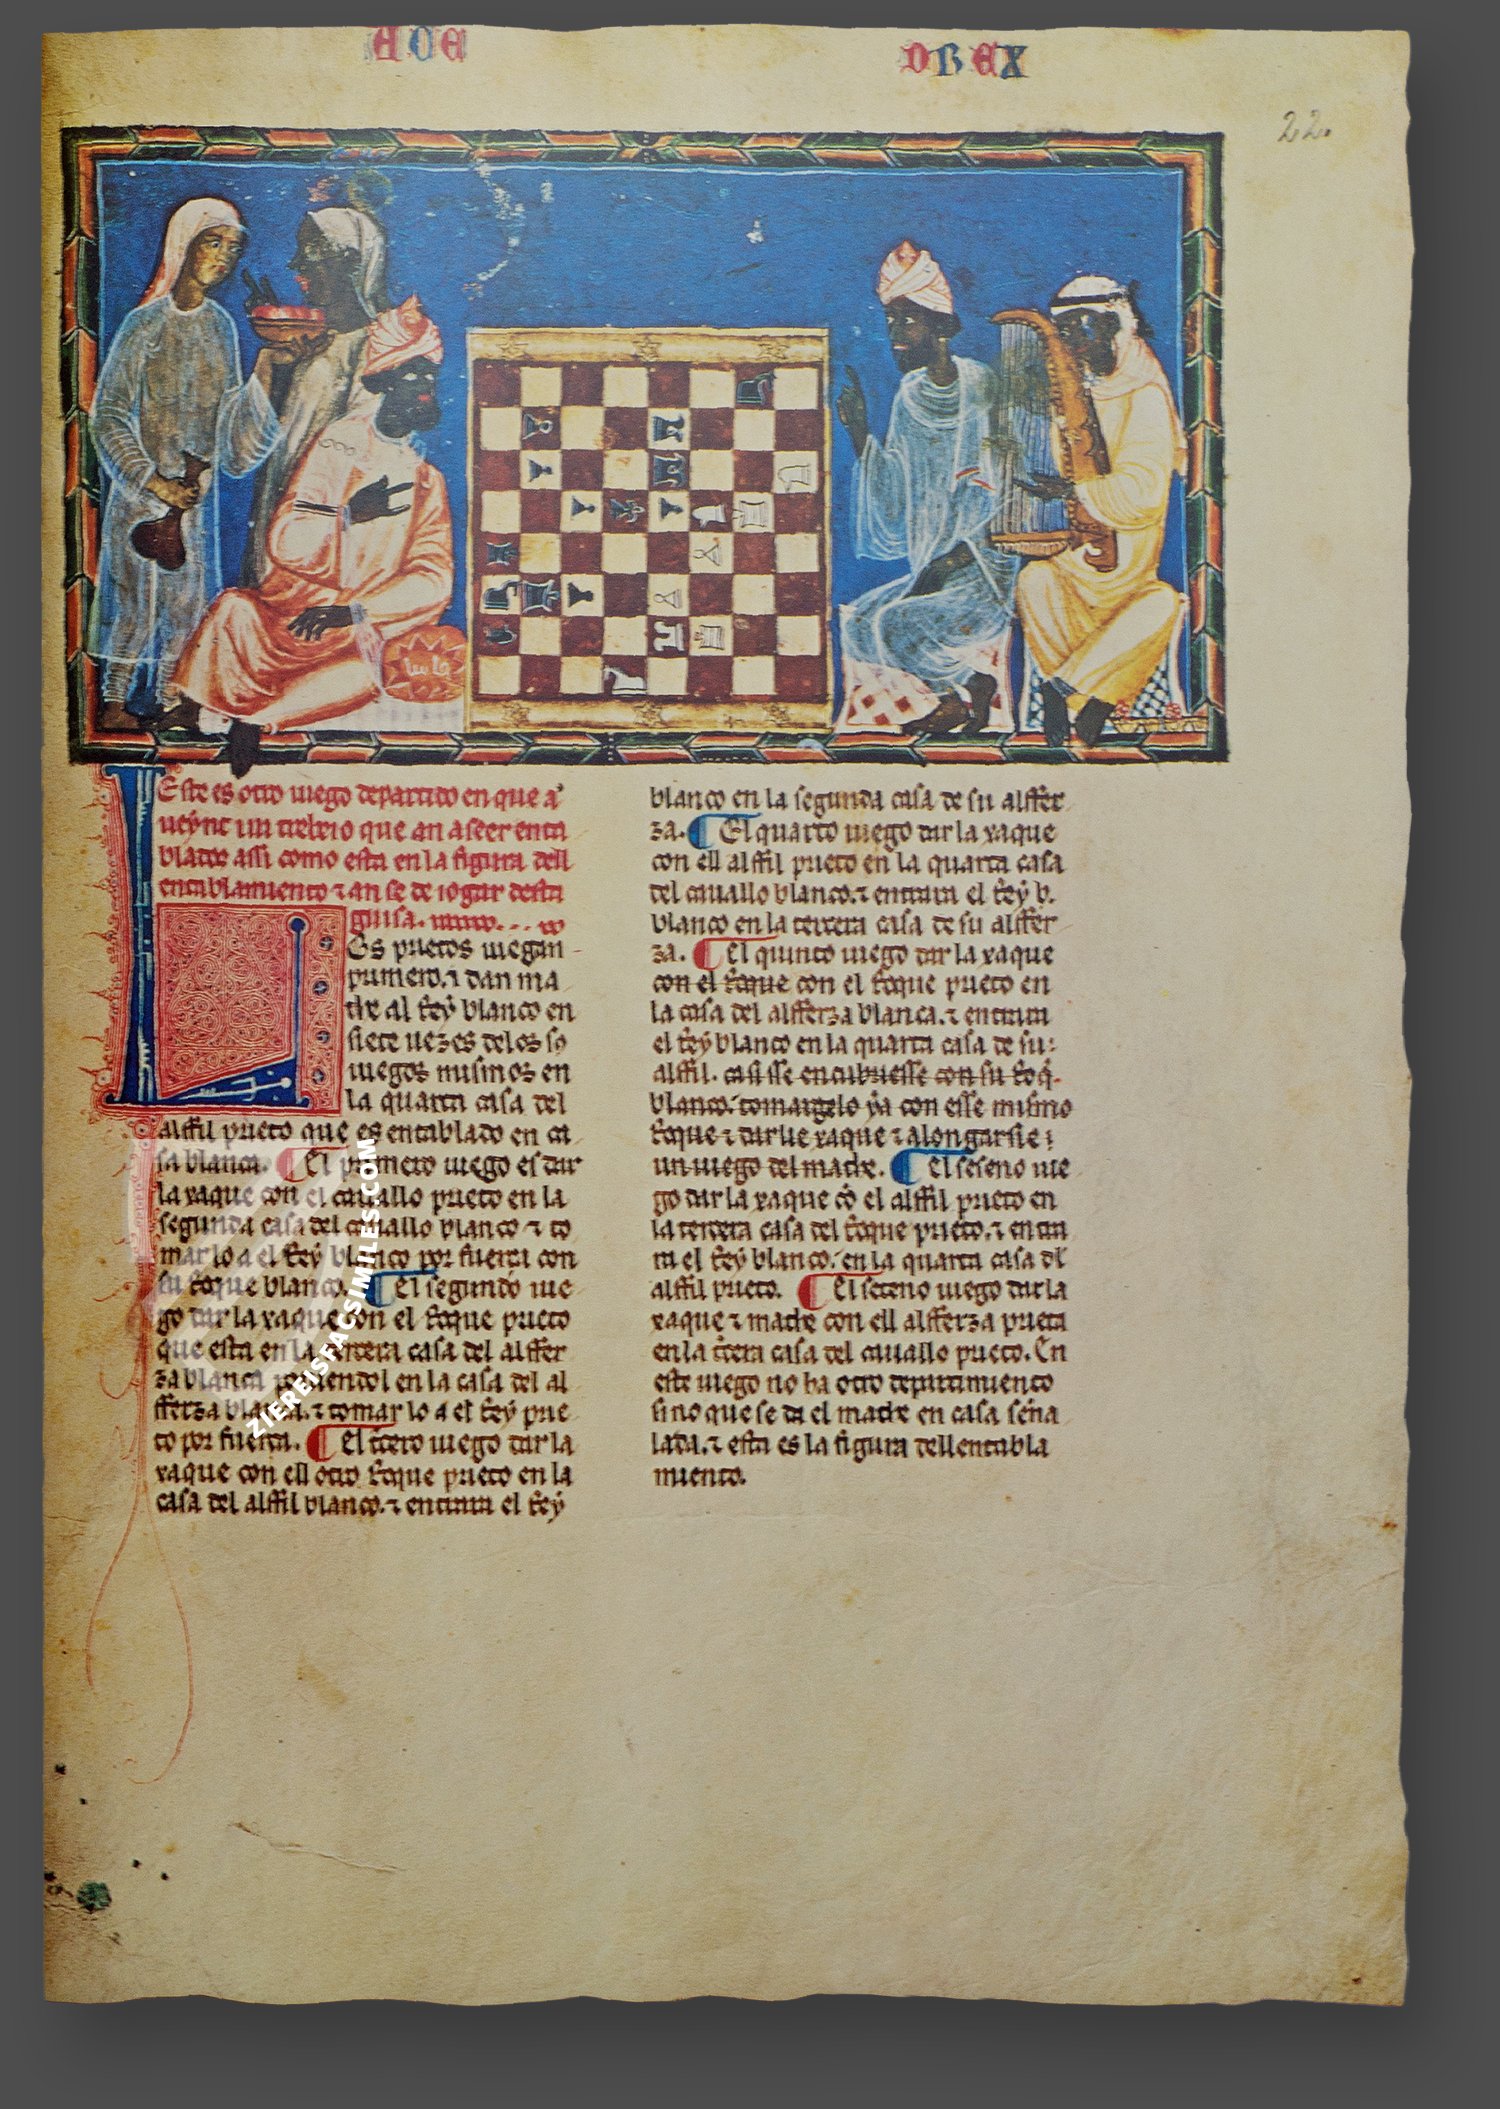 AOE
DREX
22.
Este es otro iuego departido en que a
ueynt un trebeio que an a seer enta
blados assi como esta en la figura dell
entablamiento ⁊ an se de iogar desta
guisa.
Los prietos iuegan
primero. ⁊ dan ma
the al Rey blanco en
siete uezes delos so
iuegos mismos en
la quarta casa del
alffil prieto que es entablado en ca
sa blanca. ¶ El primero iuego es dar
la xaque con el cauallo prieto en la
segunda casa del cauallo blanco ⁊ to
mar lo a el Rey blanco por fuerça con
su Roque blanco. ¶ El segundo iue
go dar la xaque con el Roque prieto
que esta en la tercera casa del alffer
za blanca poniendol en la casa del al
fferza blanca. ⁊ tomar lo a el Rey prie
to por fuerça. ¶ El tercero iuego dar la
xaque con ell otro Roque prieto en la
casa del alffil blanco. ⁊ entrara el Rey
blanco en la segunda casa de su alffer
za. ¶ El quarto iuego dar la xaque
con ell alffil prieto en la quarta casa
del cauallo blanco. ⁊ entrara el Rey b.
blanco en la tercera casa de su alffer
za. ¶ El quinto iuego dar la xaque
con el Roque con el Roque prieto en
la casa del alfferza blanca. ⁊ entrara
el Rey blanco en la quarta casa de su
alffil. ca si sse encubriesse con su Roq̃
blanco. tomargelo ya con esse mismo
Roque ⁊ darlie xaque ⁊ alongarsie
un iuego del mathe. ¶ El seseno iue
go dar la xaque cõ el alffil prieto en
la tercera casa del Roque prieto. ⁊ entra
ra el Rey blanco. en la quarta casa dl
alffil prieto. ¶ El seteno iuego dar la
xaque ⁊ mathe con ell alfferza prieta
en la tercera casa del cauallo prieto. En
este iuego no ha otro departimiento
sino que se da el mathe en casa sena
lada. ⁊ esta es la figura dell entabla
miento.
ZIEREISFACSIMILES.COM